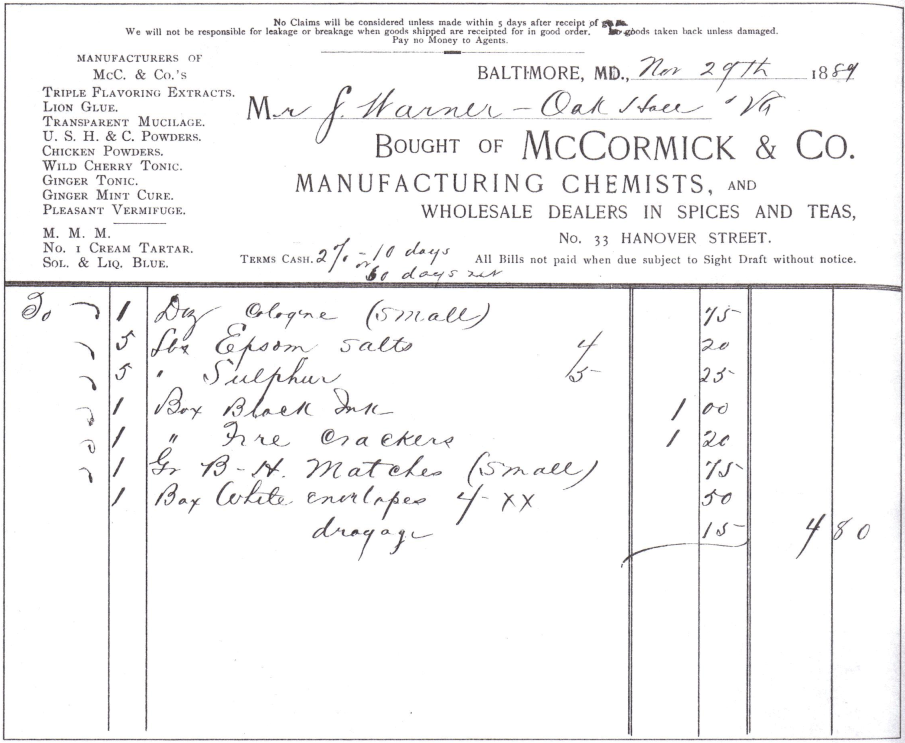 No Claims will be considered unless made within 5 days after receipt of
We will not be responsible for leakage or breakage when goods shipped are receipted for in good order. No goods taken back unless damaged.
Pay no Money to Agents.
MANUFACTURERS OF
McC. & Co.'s
TRIPLE FLAVORING EXTRACTS.
LION GLUE.
TRANSPARENT MUCILAGE.
U. S. H. & C. POWDERS.
CHICKEN POWDERS.
WILD CHERRY TONIC.
GINGER TONIC.
GINGER MINT CURE.
PLEASANT VERMIFUGE.
M. M. M.
No. 1 CREAM TARTAR.
SOL. & LIQ. BLUE.
BALTIMORE, MD., Nov 29th 1889
Mr J. Warner - Oak Hall Va
BOUGHT OF McCORMICK & CO.
MANUFACTURING CHEMISTS, AND
WHOLESALE DEALERS IN SPICES AND TEAS,
No. 33 HANOVER STREET.
TERMS CASH. 2% - 10 days
or 60 days net
All Bills not paid when due subject to Sight Draft without notice.
To 1 Doz Cologne (Small) 75
5 Lbs Epsom Salts 4 20
5 " Sulphur 5 25
1 Box Black Ink 1 00
1 " Fire Crackers 1 20
1 Gr B-H. Matches (Small) 75
1 Box White envelopes 4-XX 50
drayage 15 4 80